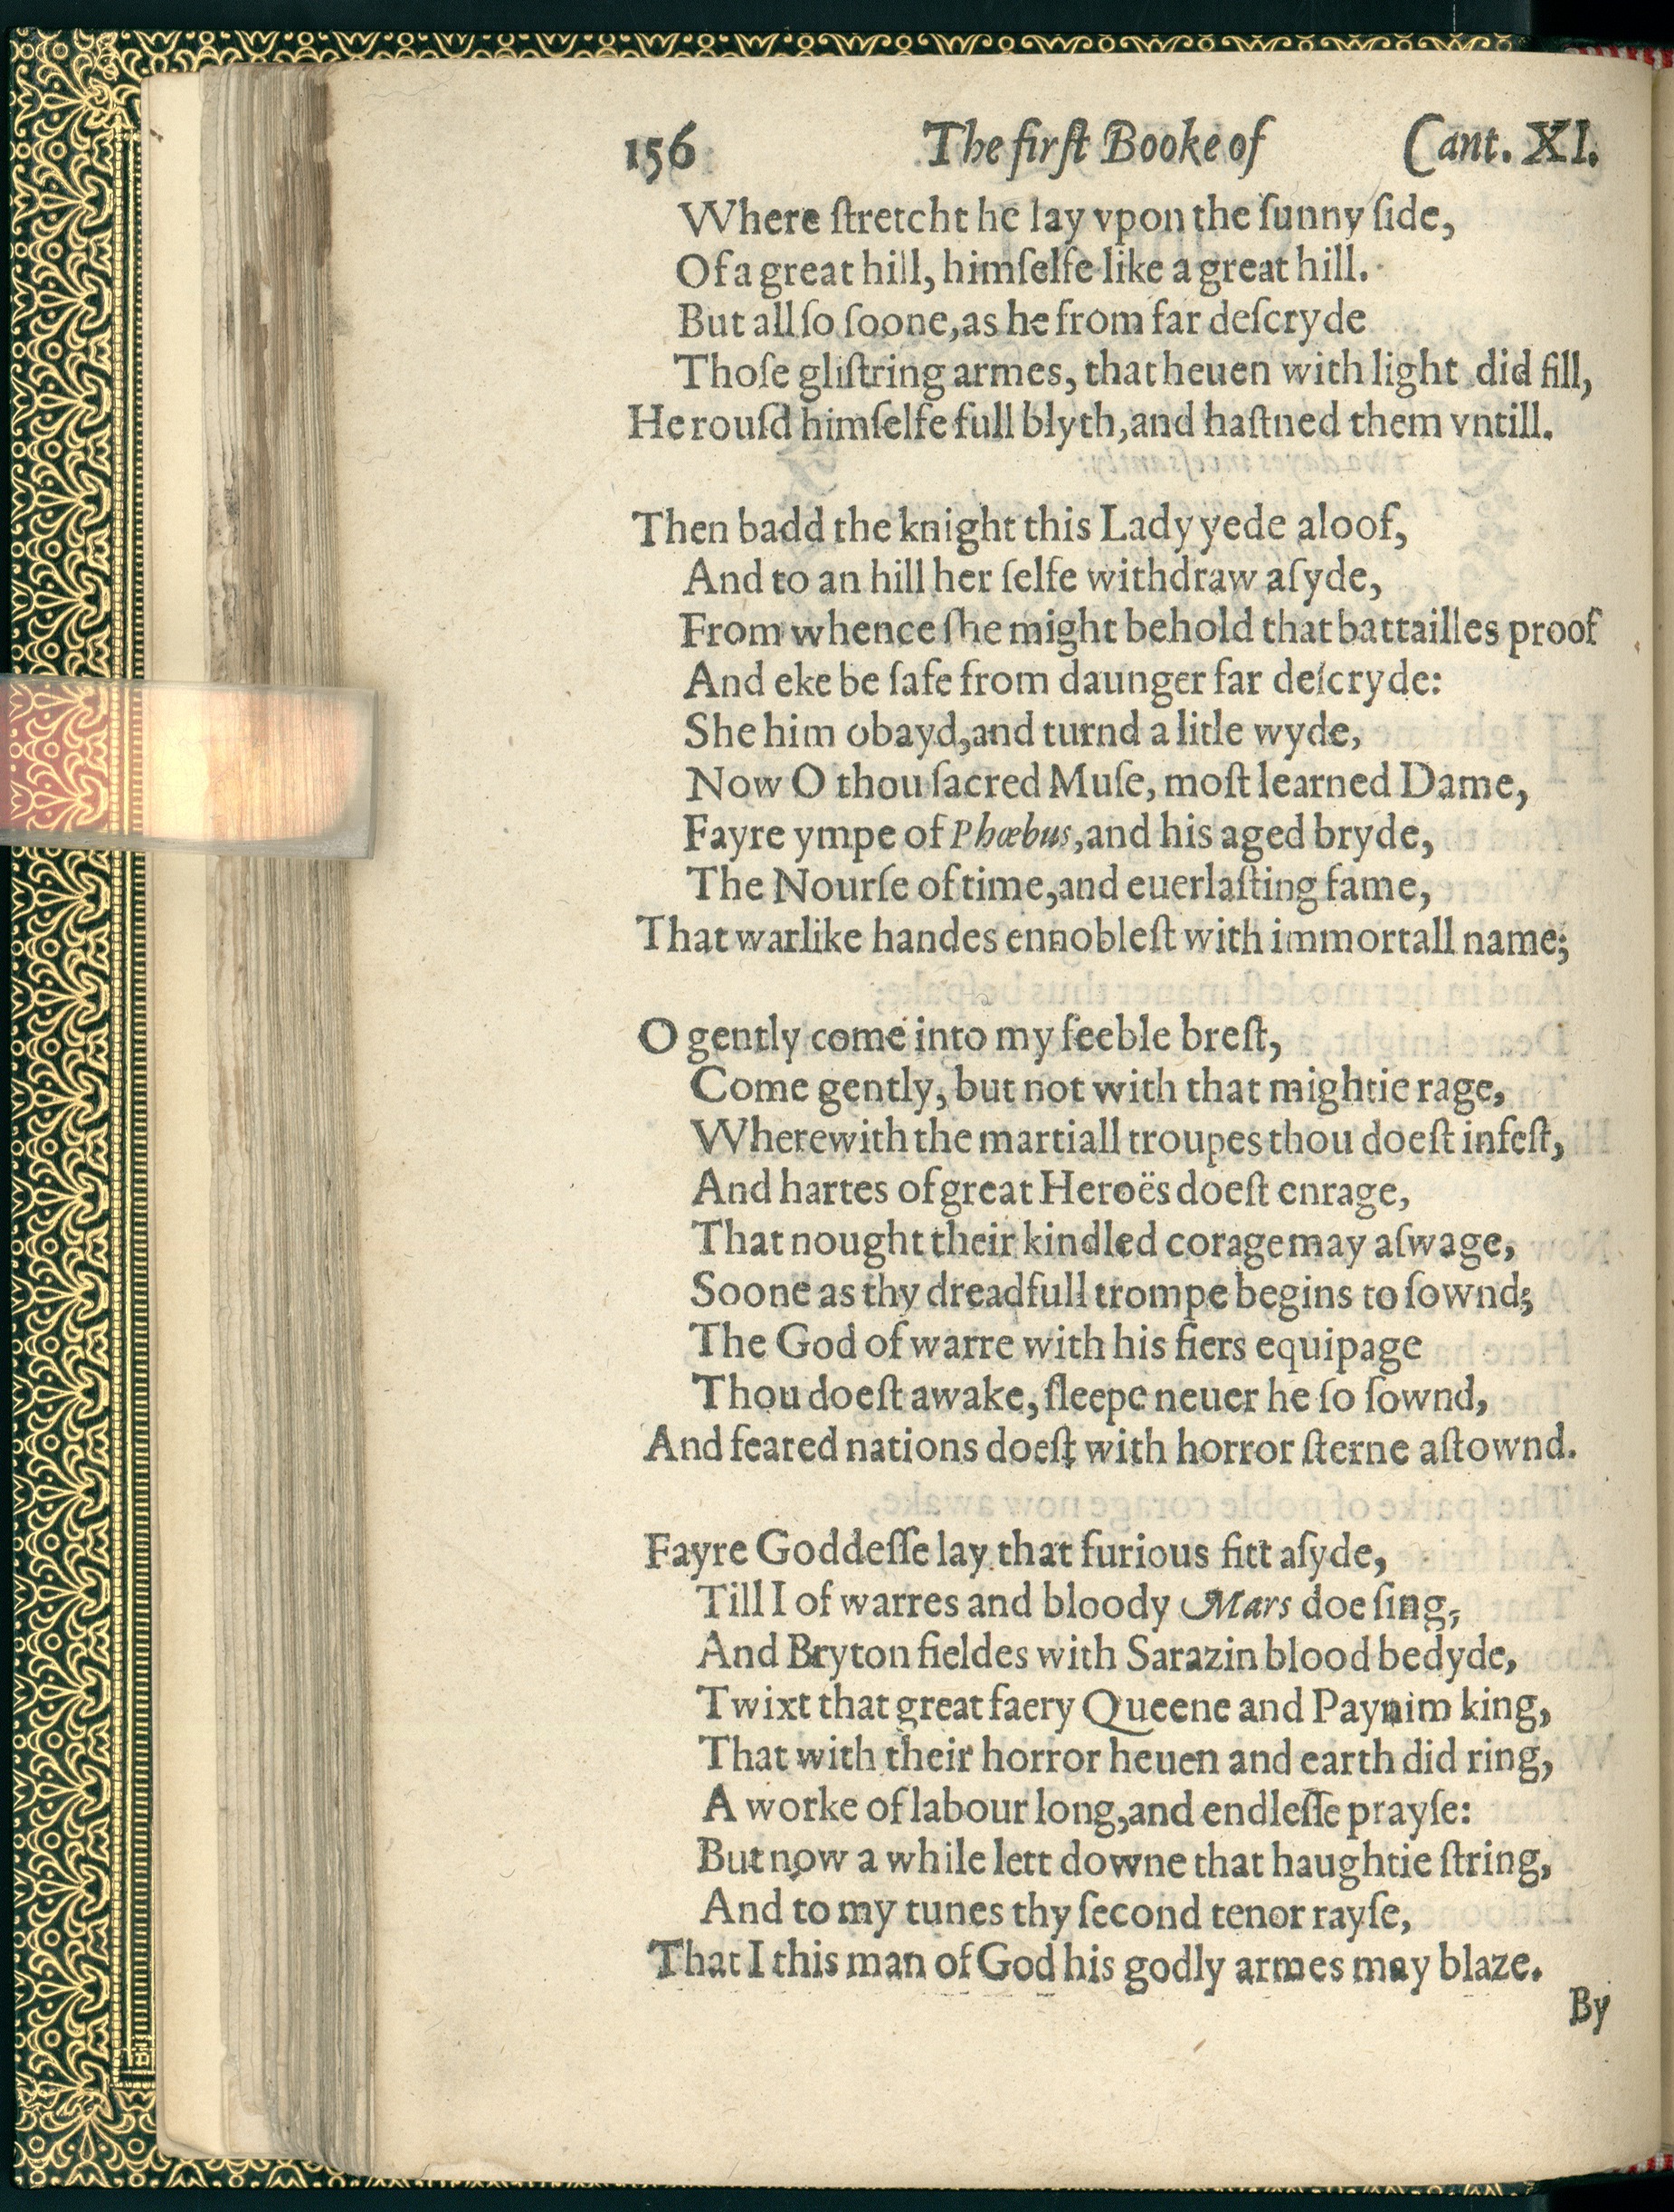 156 The firſt Booke of Cant. XI.
Where ſtretcht he lay vpon the ſunny ſide,
Of a great hill, himſelfe like a great hill.
But all ſo ſoone, as he from far deſcryde
Thoſe gliſtring armes, that heuen with light did fill,
He rouſd himſelfe full blyth, and haſtned them vntill.
Then badd the knight this Lady yede aloof,
And to an hill her ſelfe withdraw aſyde,
From whence ſhe might behold that battailles proof
And eke be ſafe from daunger far deſcryde:
She him obayd, and turnd a litle wyde,
Now O thou ſacred Muſe, moſt learned Dame,
Fayre ympe of Phœbus, and his aged bryde,
The Nourſe of time, and euerlaſting fame,
That warlike handes ennobleſt with immortall name;
O gently come into my feeble breſt,
Come gently, but not with that mightie rage,
Wherewith the martiall troupes thou doeſt infeſt,
And hartes of great Heroës doeſt enrage,
That nought their kindled corage may aſwage,
Soone as thy dreadfull trompe begins to ſownd;
The God of warre with his fiers equipage
Thou doeſt awake, ſleepe neuer he ſo ſownd,
And feared nations doeſt with horror ſterne aſtownd.
Fayre Goddeſſe lay that furious fitt aſyde,
Till I of warres and bloody Mars doe ſing,
And Bryton fieldes with Sarazin blood bedyde,
Twixt that great faery Queene and Paynim king,
That with their horror heuen and earth did ring,
A worke of labour long, and endleſſe prayſe:
But now a while lett downe that haughtie ſtring,
And to my tunes thy ſecond tenor rayſe,
That I this man of God his godly armes may blaze.
By